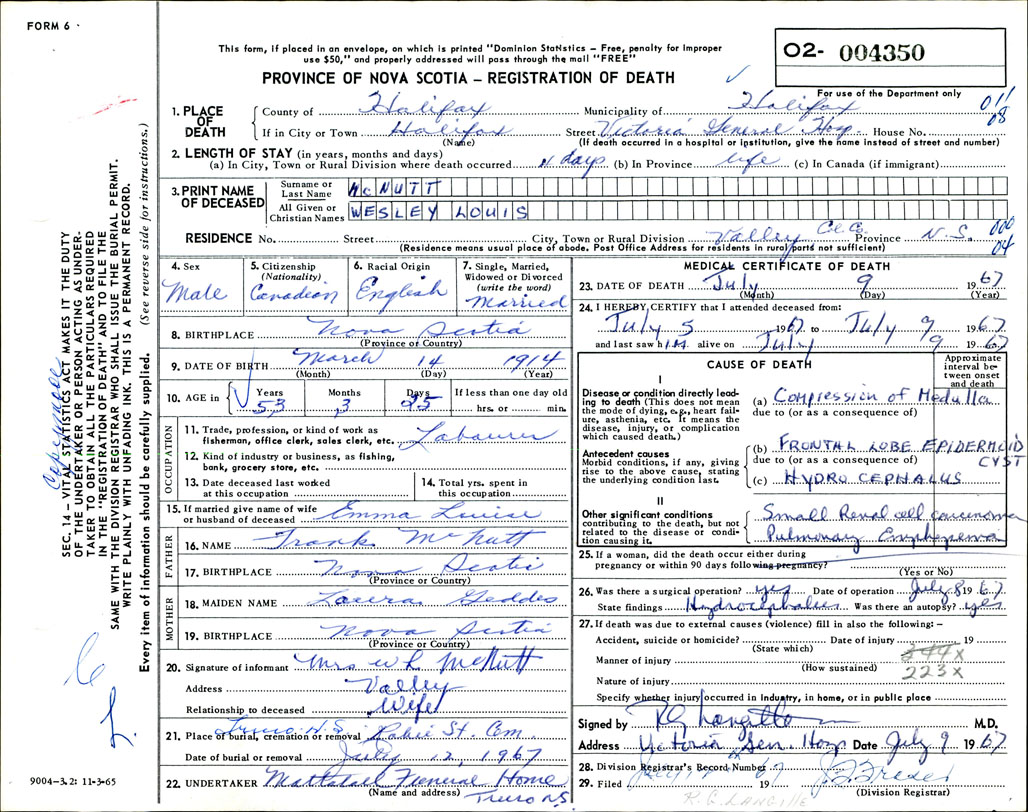 FORM 6
This form, if placed in an envelope, on which is printed "Dominion Statistics – Free, penalty for improper
use $50," and properly addressed will pass through the mail "FREE"
O2- 004350
PROVINCE OF NOVA SCOTIA – REGISTRATION OF DEATH
For use of the Department only
011
08
1. PLACE OF DEATH County of Halifax Municipality of Halifax
If in City or Town Halifax Street Victoria General Hosp House No.
(Name) (If death occurred in a hospital or institution, give the name instead of street and number)
2. LENGTH OF STAY (in years, months and days)
(a) In City, Town or Rural Division where death occurred 11 days (b) In Province life (c) In Canada (if immigrant)
3. PRINT NAME OF DECEASED
Surname or Last Name McNUTT
All Given or Christian Names WESLEY LOUIS
RESIDENCE No. Street City, Town or Rural Division Valley Col. Co. Province N.S.
000
04
(Residence means usual place of abode. Post Office Address for residents in rural parts not sufficient)
4. Sex Male
5. Citizenship (Nationality) Canadian
6. Racial Origin English
7. Single, Married, Widowed or Divorced (write the word) Married
8. BIRTHPLACE Nova Scotia
(Province or Country)
9. DATE OF BIRTH March 14 1914
(Month) (Day) (Year)
10. AGE in Years 53 Months 3 Days 25 If less than one day old hrs. or min.
OCCUPATION
11. Trade, profession, or kind of work as fisherman, office clerk, sales clerk, etc. Labourer
12. Kind of industry or business, as fishing, bank, grocery store, etc.
13. Date deceased last worked at this occupation
14. Total yrs. spent in this occupation
15. If married give name of wife or husband of deceased Emma Louise
FATHER
16. NAME Frank McNutt
17. BIRTHPLACE Nova Scotia
(Province or Country)
MOTHER
18. MAIDEN NAME Laura Geddes
19. BIRTHPLACE Nova Scotia
(Province or Country)
20. Signature of informant Mrs W L McNutt
Address Valley
Relationship to deceased Wife
21. Place of burial, cremation or removal Truro N.S. Robie St. Cem.
Date of burial or removal July 12, 1967
22. UNDERTAKER Mattatall Funeral Home
(Name and address) Truro N.S.
MEDICAL CERTIFICATE OF DEATH
23. DATE OF DEATH July 9 1967
(Month) (Day) (Year)
24. I HEREBY CERTIFY that I attended deceased from:
July 5 1967 to July 9 1967
and last saw him alive on July 9 1967
CAUSE OF DEATH
Approximate interval between onset and death
I
Disease or condition directly leading to death (This does not mean the mode of dying, e.g., heart failure, asthenia, etc. It means the disease, injury, or complication which caused death.)
(a) Compression of Medulla
due to (or as a consequence of)
Antecedent causes
Morbid conditions, if any, giving rise to the above cause, stating the underlying condition last.
(b) FRONTAL LOBE EPIDERMOID CYST
due to (or as a consequence of)
(c) HYDROCEPHALUS
II
Other significant conditions
contributing to the death, but not related to the disease or condition causing it.
Small Renal cell carcinoma
Pulmonary Emphysema
25. If a woman, did the death occur either during
pregnancy or within 90 days following pregnancy?
(Yes or No)
26. Was there a surgical operation? yes Date of operation July 8 1967
State findings Hydrocephalus Was there an autopsy? yes
27. If death was due to external causes (violence) fill in also the following: –
Accident, suicide or homicide? Date of injury 19
(State which)
344x
Manner of injury
(How sustained)
223x
Nature of injury
Specify whether injury occurred in industry, in home, or in public place
Signed by RG Langille M.D.
Address Victoria Gen. Hosp Date July 9 1967
28. Division Registrar's Record Number
29. Filed July 19 67
(Division Registrar)
R.G. LANGILLE
SEC. 14 – VITAL STATISTICS ACT MAKES IT THE DUTY
OF THE UNDERTAKER OR PERSON ACTING AS UNDER-
TAKER TO OBTAIN ALL THE PARTICULARS REQUIRED
IN THE "REGISTRATION OF DEATH" AND TO FILE THE
SAME WITH THE DIVISION REGISTRAR WHO SHALL ISSUE THE BURIAL PERMIT.
WRITE PLAINLY WITH UNFADING INK. THIS IS A PERMANENT RECORD.
Every item of information should be carefully supplied. (See reverse side for instructions.)
9004-3.2: 11-3-65